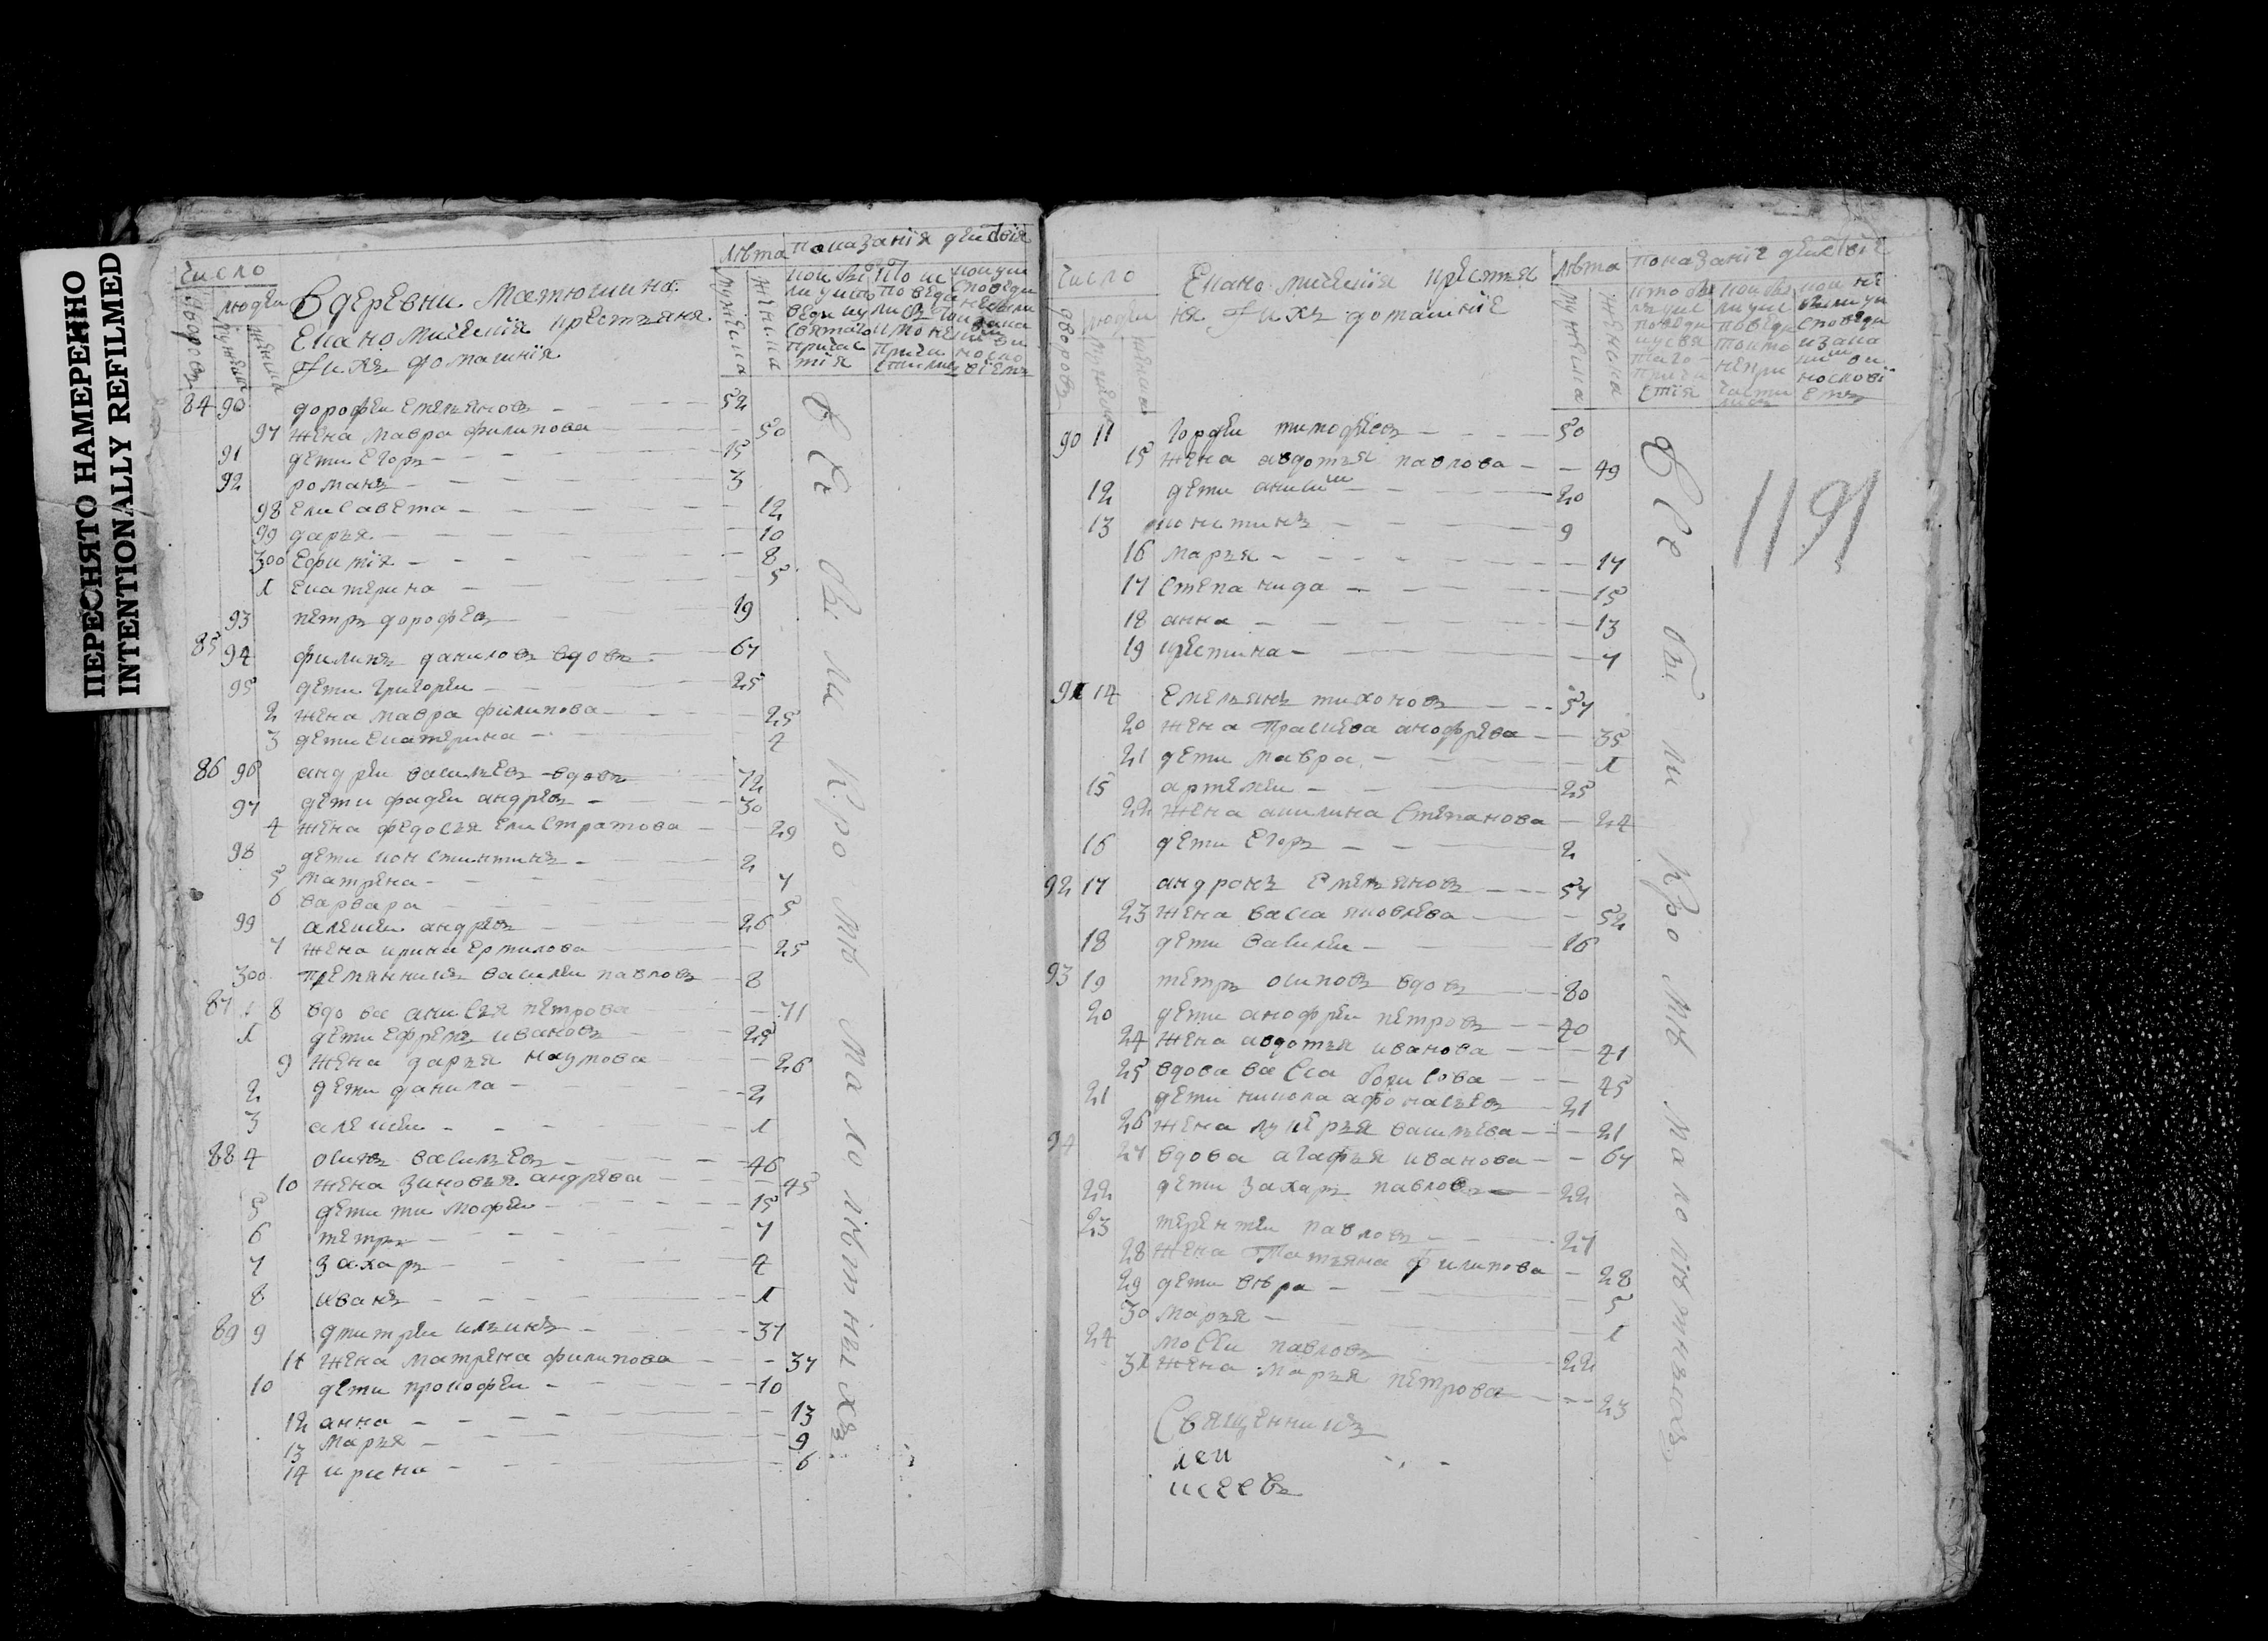 ПЕРЕСНЯТО НАМЕРЕННО
INTENTIONALLY REFILMED
число
дворовъ
людеи
мужеска
женска
В деревни Матюшина
Економическия крестьяня
и ихъ домашния
лѣта
мужеска
женска
показания деиствія
84 90 дорофеи емельяновъ 52
97 жена мавра филипова 50
91 дети егоръ 15
92 романъ 3
98 елисавета 12
99 дарья 10
300 ефимїя 8
1 екатерина 5
93 петръ дорофѣевъ 19
85 94 филипъ даниловъ вдовъ 67
95 дети григореи 25
2 жена мавра филипова 25
3 дети екатерина 4
86 96 андреи васильевъ вдовъ 72
97 дети фадеи андревъ 30
4 жена федосья елистратова 29
98 дети констинтинъ 2
5 матрена 7
6 варвара 5
99 алексеи андревъ 26
7 жена ирина ермилова 25
300 племянникъ василеи павловъ 8
87 8 вдова анисья петрова 71
1 дети ефремъ ивановъ 25
9 жена дарья наумова 26
2 дети данила 2
3 алексеи 1
88 4 осипъ васильевъ 46
10 жена зиновья андрева 45
5 дети тимофеи 15
6 петръ 7
7 захаръ 4
8 иванъ 1
89 9 дмитреи ильинъ 37
11 жена матрена филипова 37
10 дети прокофеи 10
12 анна 13
13 марья 9
14 ирина 6
Все были кромѣ малолѣтныхъ
число
дворовъ
людеи
мужеска
женска
Економическия крестья
ня и ихъ домашние
лѣта
мужеска
женска
показаніе деиствіе
90 11 гордеи тимофеевъ 50
15 жена авдотья павлова 49
12 дети аники 20
13 констинъ 9
16 марья 17
17 степанида 15
18 анна 13
19 крестина 7
91 14 емельянъ тихоновъ 57
20 жена прасковя анофрева 35
21 дети мавра 1
15 артемеи 25
22 жена акилина степанова 24
16 дети егоръ 2
92 17 андронъ емельяновъ 57
23 жена васса яковлева 52
18 дети василеи 16
93 19 петръ осиповъ вдовъ 80
20 дети анофреи петровъ 40
24 жена авдотья иванова 41
25 вдова васса борисова 45
21 дети никола афонасьевъ 21
26 жена лукерья васильева 21
94 27 вдова агафья иванова 67
22 дети захаръ павловъ 22
23 терентеи павловъ 27
28 жена татьяна филипова 28
29 дети вѣра 5
30 марья 1
24 мосеи павловъ 22
31 жена марья петрова 23
Все были кромѣ малолѣтныхъ
1191
Священникъ
леи